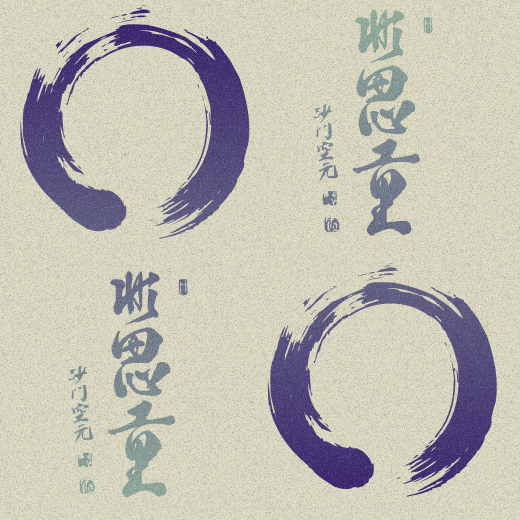 非思量
沙门空元
非思量
沙门空元